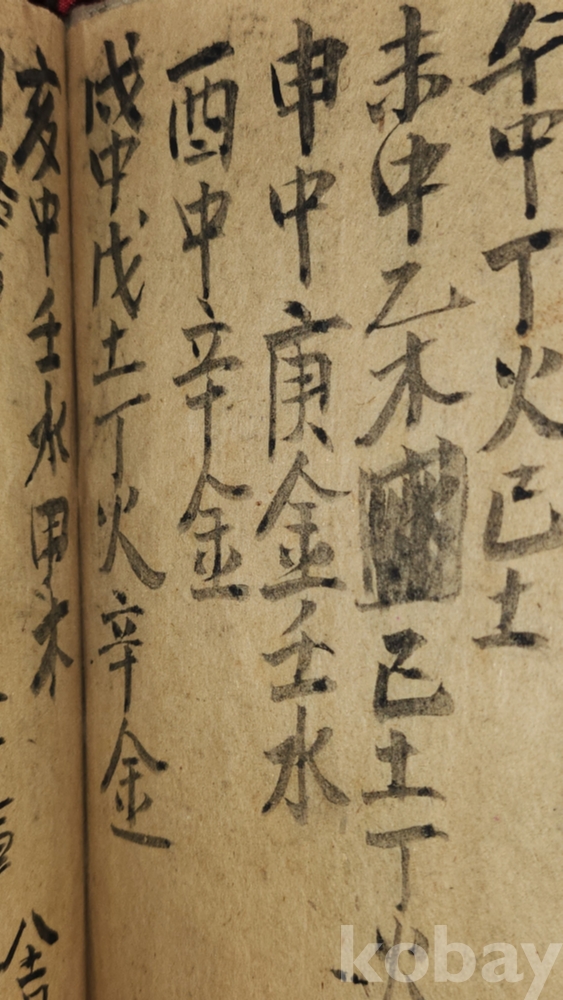 午中丁火己土
未中乙木己土丁火
申中庚金壬水
酉中辛金
戌中戊土丁火辛金
亥中壬水甲木
kobay